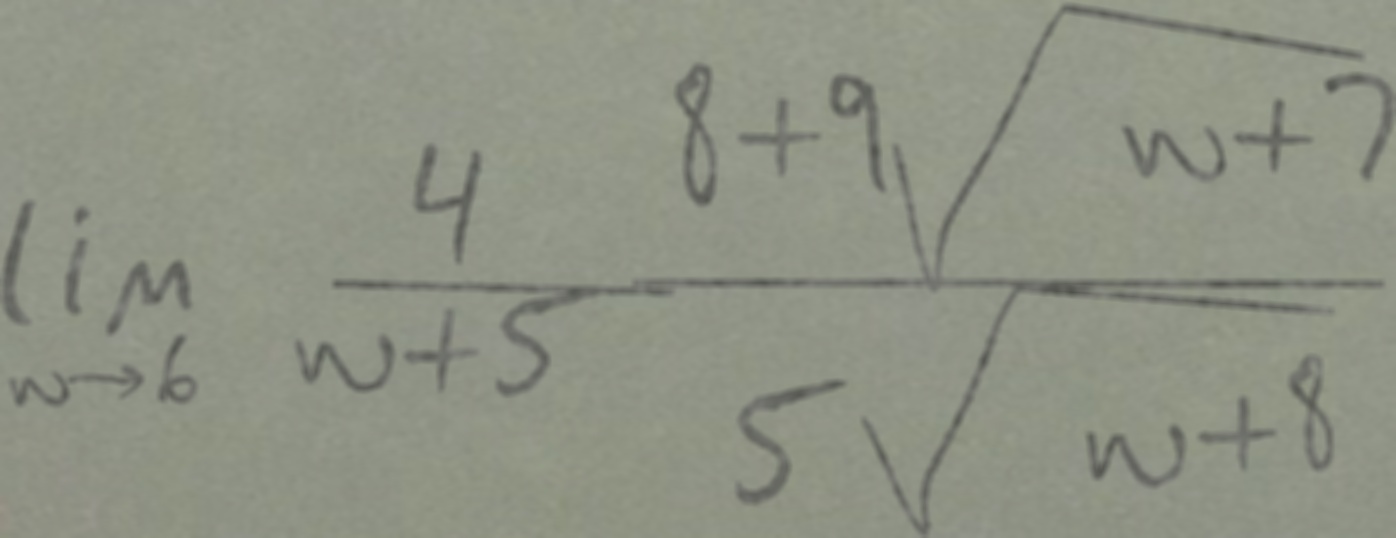 \lim_{w \to 6} \frac{4}{w+5} \frac{8+9\sqrt{w+7}}{5\sqrt{w+8}}